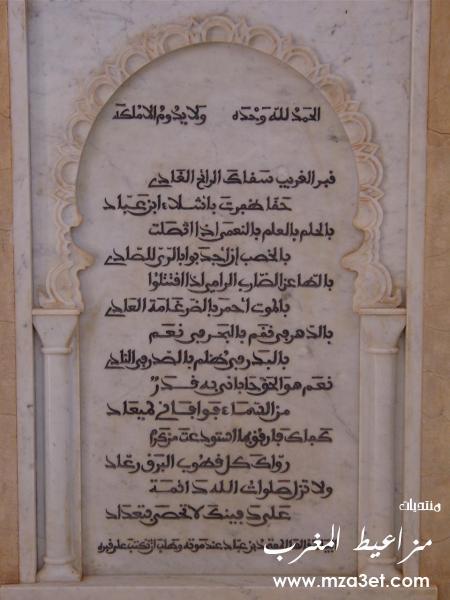 الحمد لله وحده ولا يدوم الا ملكه
قبر الغريب سقاك الرائح الغادي
حقا ظفرت باشلاء ابن عباد
بالحلم بالعلم بالنعمى اذا اتصلت
بالخصب ان اجدبوا بالري للصادي
بالطاعن الضارب الرامي اذا اقتتلوا
بالموت احمر بالضرغامة العادي
بالدهر في نقم بالبحر في نعم
بالبدر في ظلم بالصدر في النادي
نعم هو الحق حاباني به قدر
من السماء فوافاني لميعاد
كفاك فارفق بما استودعت من كرم
رواك كل قطوب البرق رعاد
ولا تزل صلوات الله دائمة
على دفينك لا تحصى بتعداد
ابيات قالها المعتمد بن عباد عند موته وطلب ان تكتب على قبره
منتديات
مزاعيط المغرب
www.mza3et.com